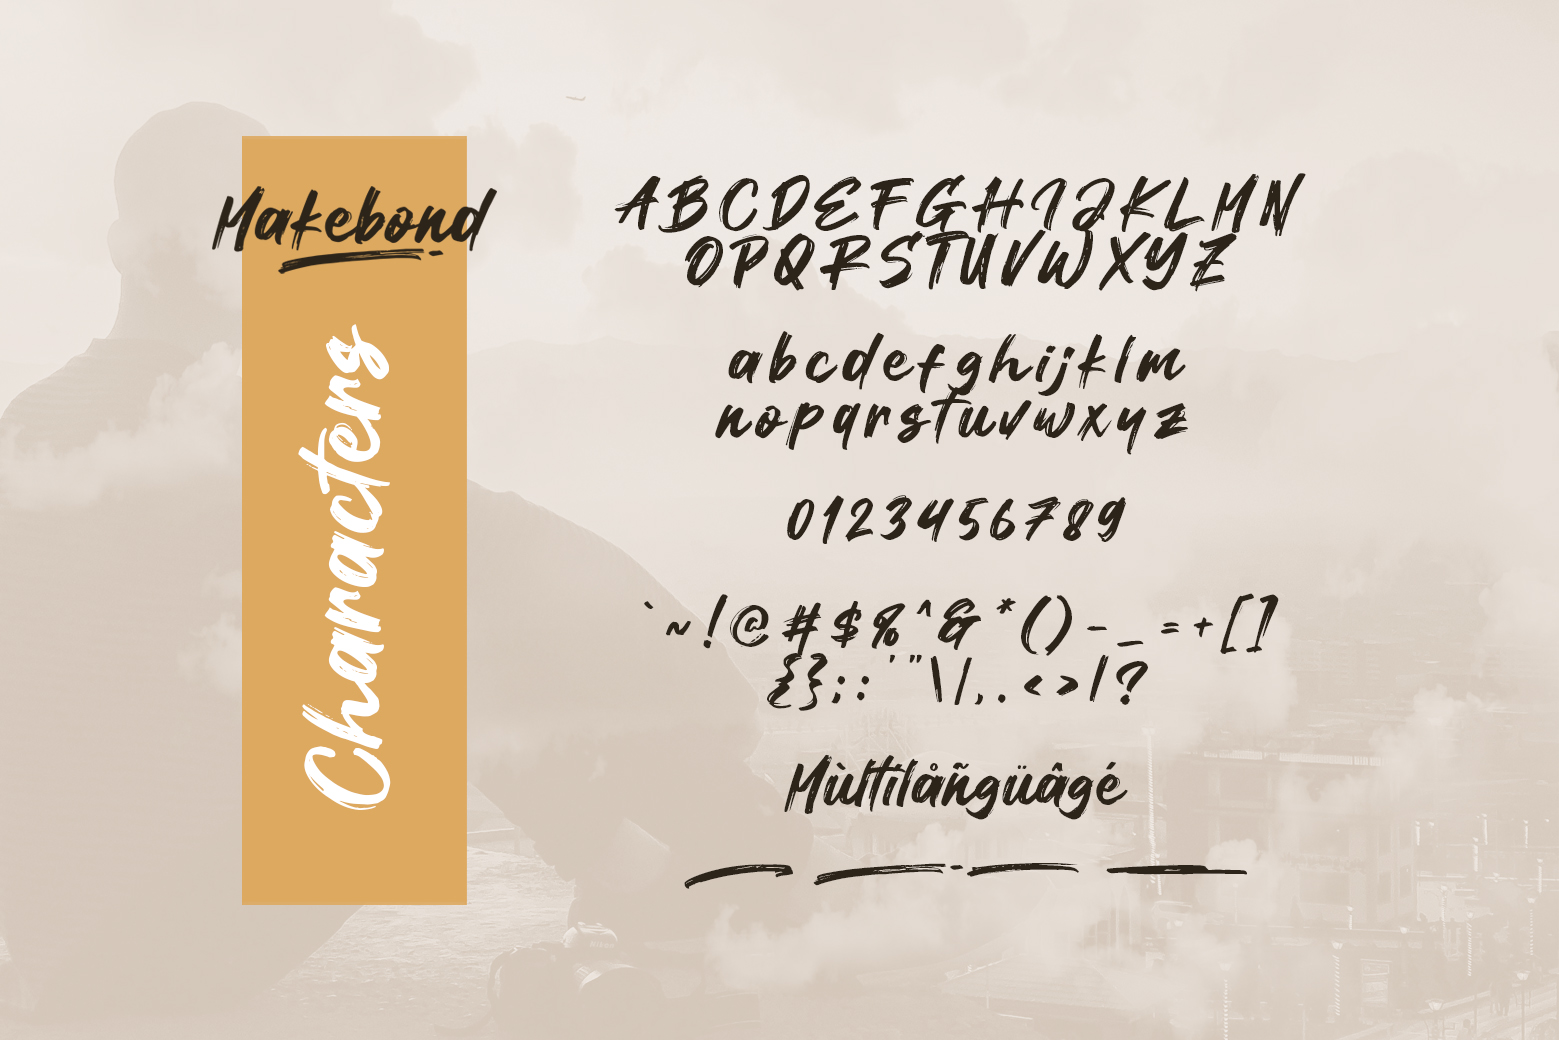 Makebond
Characters
ABCDEFGHIJKLMN
OPQRSTUVWXYZ
abcdefghijklm
nopqrstuvwxyz
0123456789
`~!@#$%^&*()-_=+[]
{};:'"\/,.<>|?
Mùltílåñgüâgé